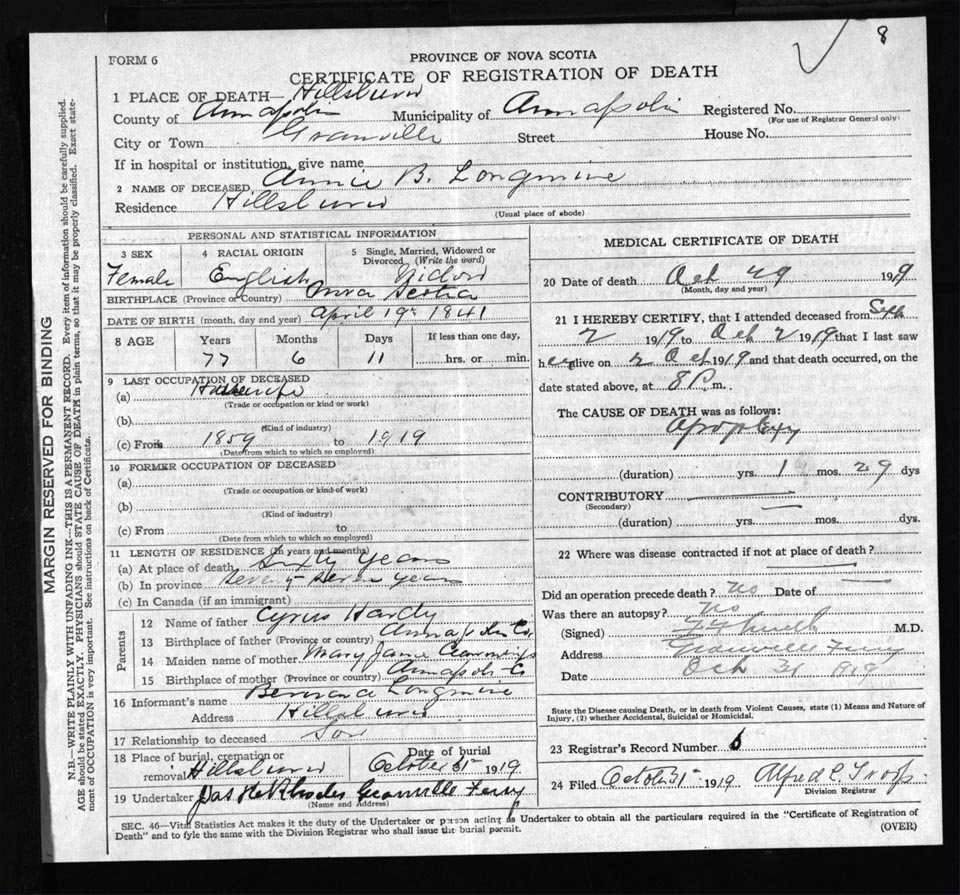 8
FORM 6
PROVINCE OF NOVA SCOTIA
CERTIFICATE OF REGISTRATION OF DEATH
1 PLACE OF DEATH— Hillsburn
County of Annapolis Municipality of Annapolis Registered No.
(For use of Registrar General only)
City or Town Granville Street House No.
If in hospital or institution, give name
2 NAME OF DECEASED Annie B. Longmire
Residence Hillsburn
(Usual place of abode)
PERSONAL AND STATISTICAL INFORMATION
3 SEX Female
4 RACIAL ORIGIN English
5 Single, Married, Widowed or Divorced (Write the word) Widow
BIRTHPLACE (Province or Country) Nova Scotia
DATE OF BIRTH (month, day and year) April 19th 1841
8 AGE Years Months Days If less than one day,
77 6 11 hrs. or min.
9 LAST OCCUPATION OF DECEASED
(a) Housewife
(Trade or occupation or kind or work)
(b)
(Kind of industry)
(c) From 1859 to 1919
(Date from which to which so employed)
10 FORMER OCCUPATION OF DECEASED
(a)
(Trade or occupation or kind of work)
(b)
(Kind of industry)
(c) From to
(Date from which to which so employed)
11 LENGTH OF RESIDENCE (In years and months)
(a) At place of death Sixty years
(b) In province Seventy Seven years
(c) In Canada (if an immigrant)
Parents
12 Name of father Cyrus Hardy
13 Birthplace of father (Province or country) Annapolis Co.
14 Maiden name of mother Mary Jane
15 Birthplace of mother (Province or country) Annapolis Co
16 Informant's name Longmire
Address Hillsburn
17 Relationship to deceased Son
18 Place of burial, cremation or removal Hillsburn
Date of burial October 31st 1919
19 Undertaker Jas H Rhodes Granville Ferry
(Name and Address)
MEDICAL CERTIFICATE OF DEATH
20 Date of death Oct 29 1919
(Month, day and year)
21 I HEREBY CERTIFY, that I attended deceased from Sept
2 1919 to Oct 2 1919 that I last saw
her alive on 2 Oct 1919 and that death occurred, on the
date stated above, at 8 P. m.
The CAUSE OF DEATH was as follows:
Apoplexy
(duration) yrs. 1 mos. 29 dys
CONTRIBUTORY
(Secondary)
(duration) yrs. mos. dys.
22 Where was disease contracted if not at place of death?
Did an operation precede death? No Date of
Was there an autopsy? No
(Signed) M.D.
Address Granville Ferry
Date Oct 31 1919
State the Disease causing Death, or in death from Violent Causes, state (1) Means and Nature of
Injury, (2) whether Accidental, Suicidal or Homicidal.
23 Registrar's Record Number 6
24 Filed October 31st 1919 Alfred C. Troop
Division Registrar
SEC. 46—Vital Statistics Act makes it the duty of the Undertaker or person acting as Undertaker to obtain all the particulars required in the "Certificate of Registration of
Death" and to fyle the same with the Division Registrar who shall issue the burial permit.
(OVER)
MARGIN RESERVED FOR BINDING
N.B.—WRITE PLAINLY WITH UNFADING INK—THIS IS A PERMANENT RECORD. Every item of information should be carefully supplied.
AGE should be stated EXACTLY. PHYSICIANS should STATE CAUSE OF DEATH in plain terms, so that it may be properly classified. Exact state-
ment of OCCUPATION is very important. See instructions on back of Certificate.